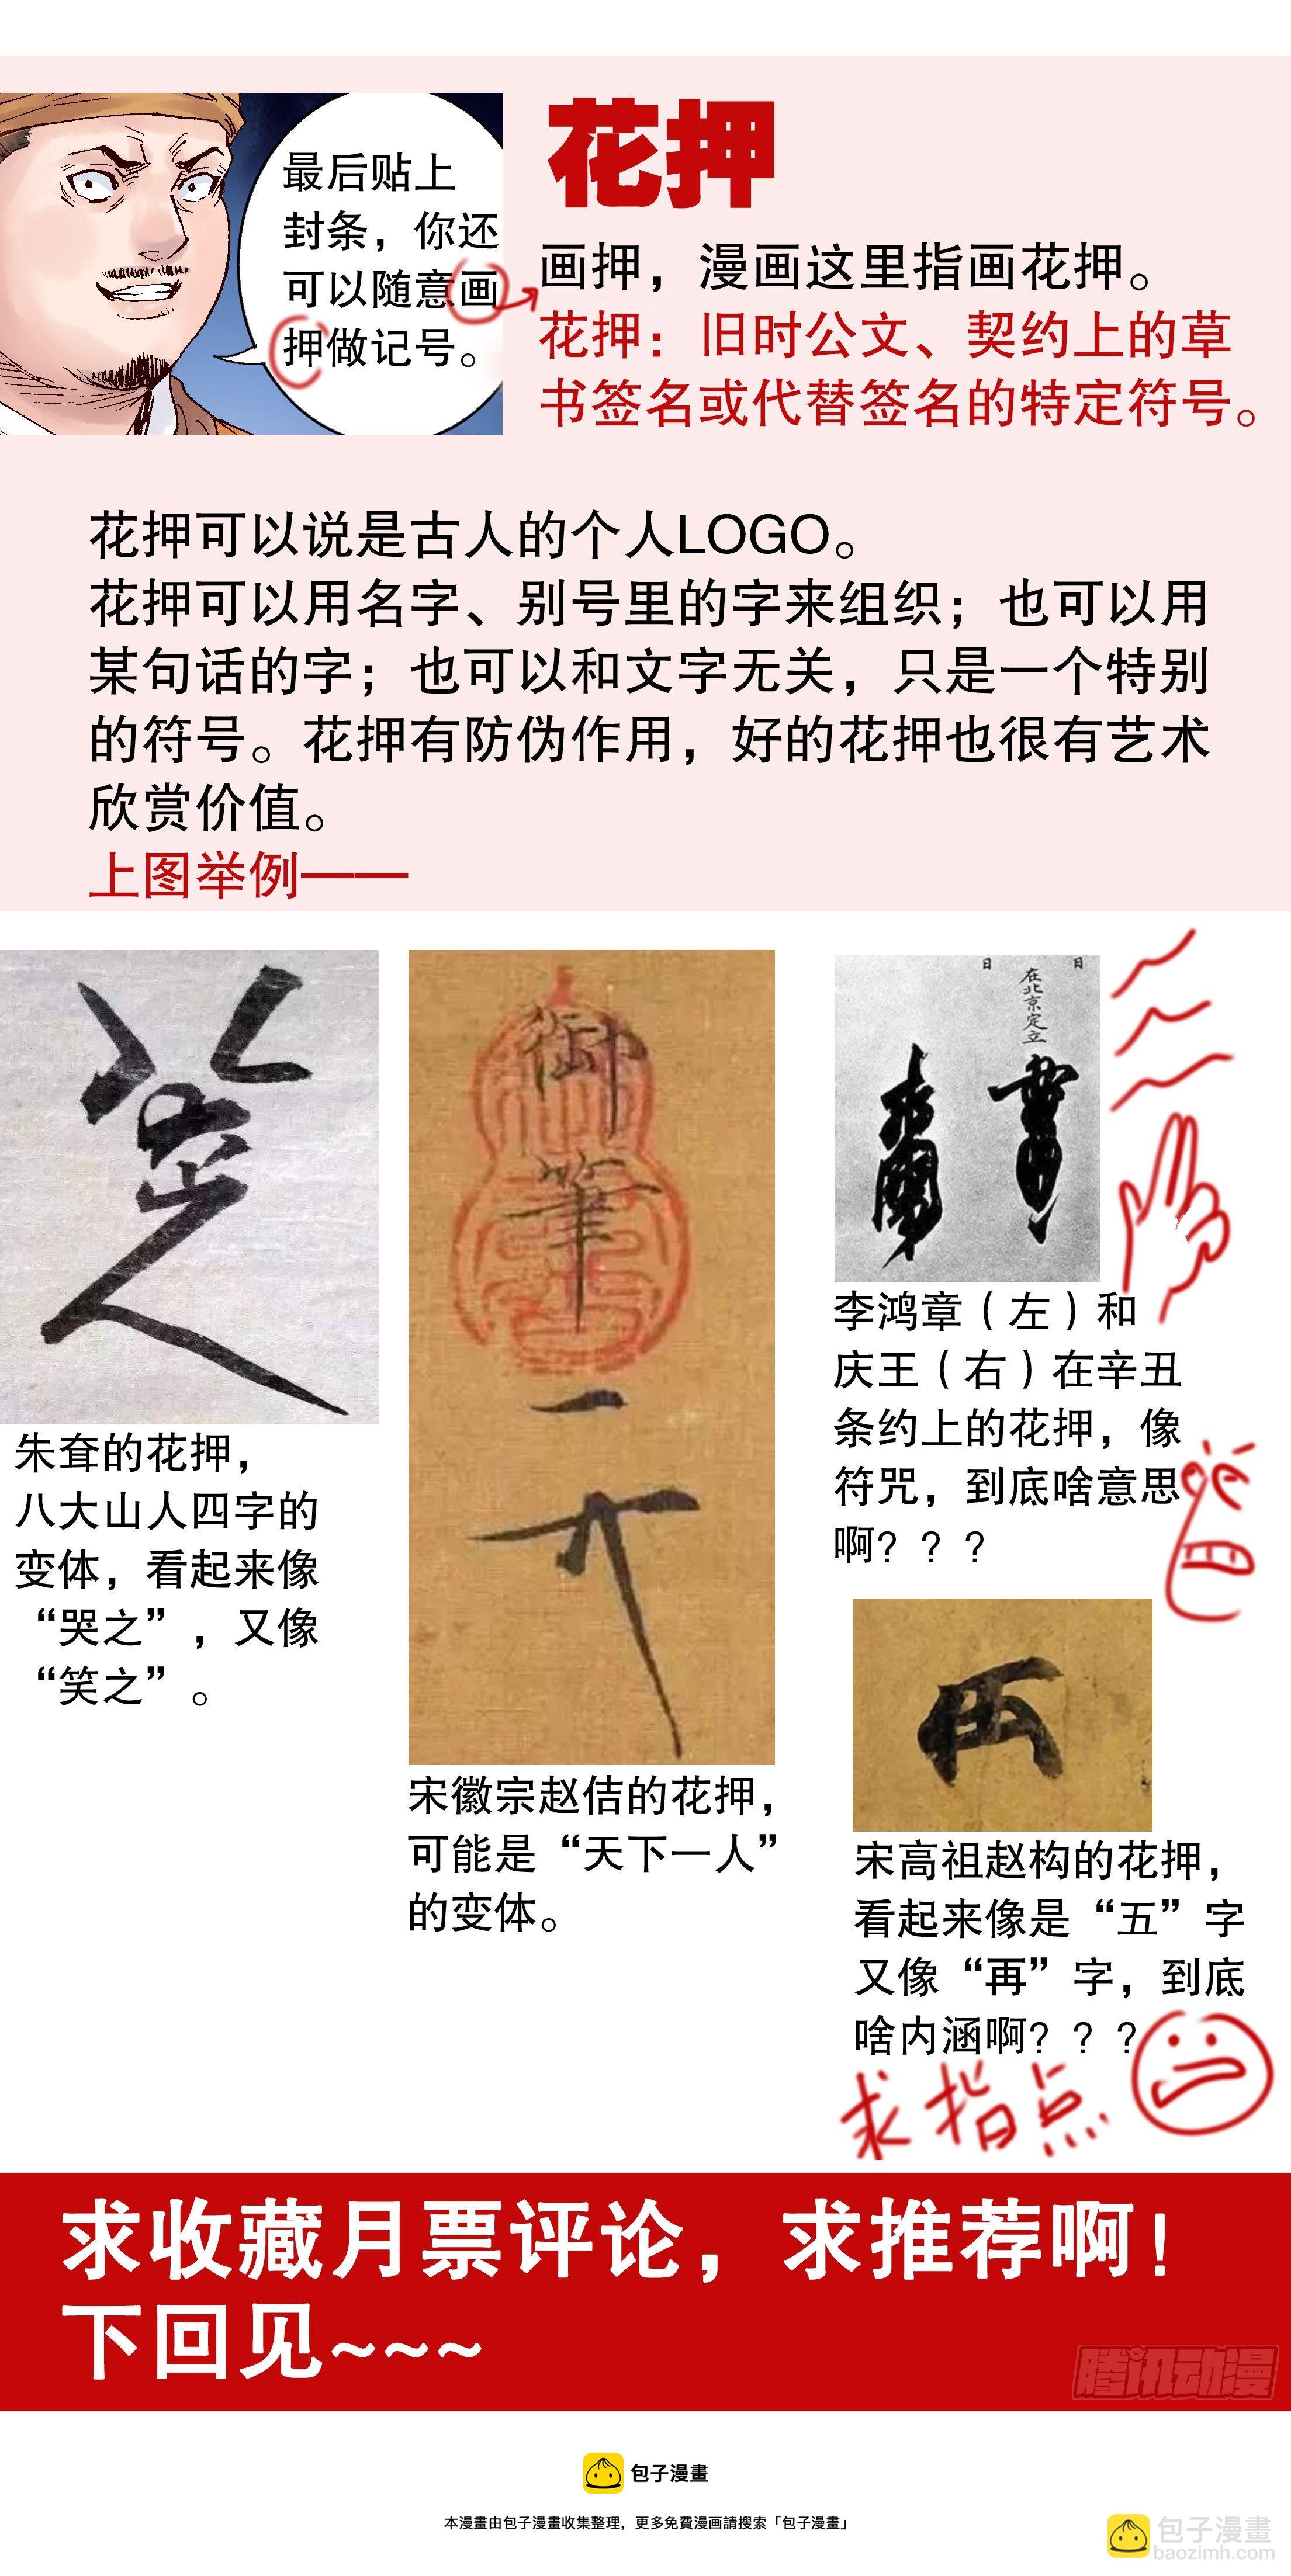 最后贴上
封条，你还
可以随意画
押做记号。
花押
画押，漫画这里指画花押。
花押：旧时公文、契约上的草
书签名或代替签名的特定符号。
花押可以说是古人的个人LOGO。
花押可以用名字、别号里的字来组织；也可以用
某句话的字；也可以和文字无关，只是一个特别
的符号。花押有防伪作用，好的花押也很有艺术
欣赏价值。
上图举例——
朱耷的花押，
八大山人四字的
变体，看起来像
“哭之”，又像
“笑之”。
御筆
宋徽宗赵佶的花押，
可能是“天下一人”
的变体。
日
日
在北京定立
李鸿章（左）和
庆王（右）在辛丑
条约上的花押，像
符咒，到底啥意思
啊？？？
宋高祖赵构的花押，
看起来像是“五”字
又像“再”字，到底
啥内涵啊？？？
求指点
求收藏月票评论，求推荐啊！
下回见~~~
腾讯动漫
包子漫畫
本漫畫由包子漫畫收集整理，更多免費漫画請搜索「包子漫畫」
包子漫畫
baozimh.com